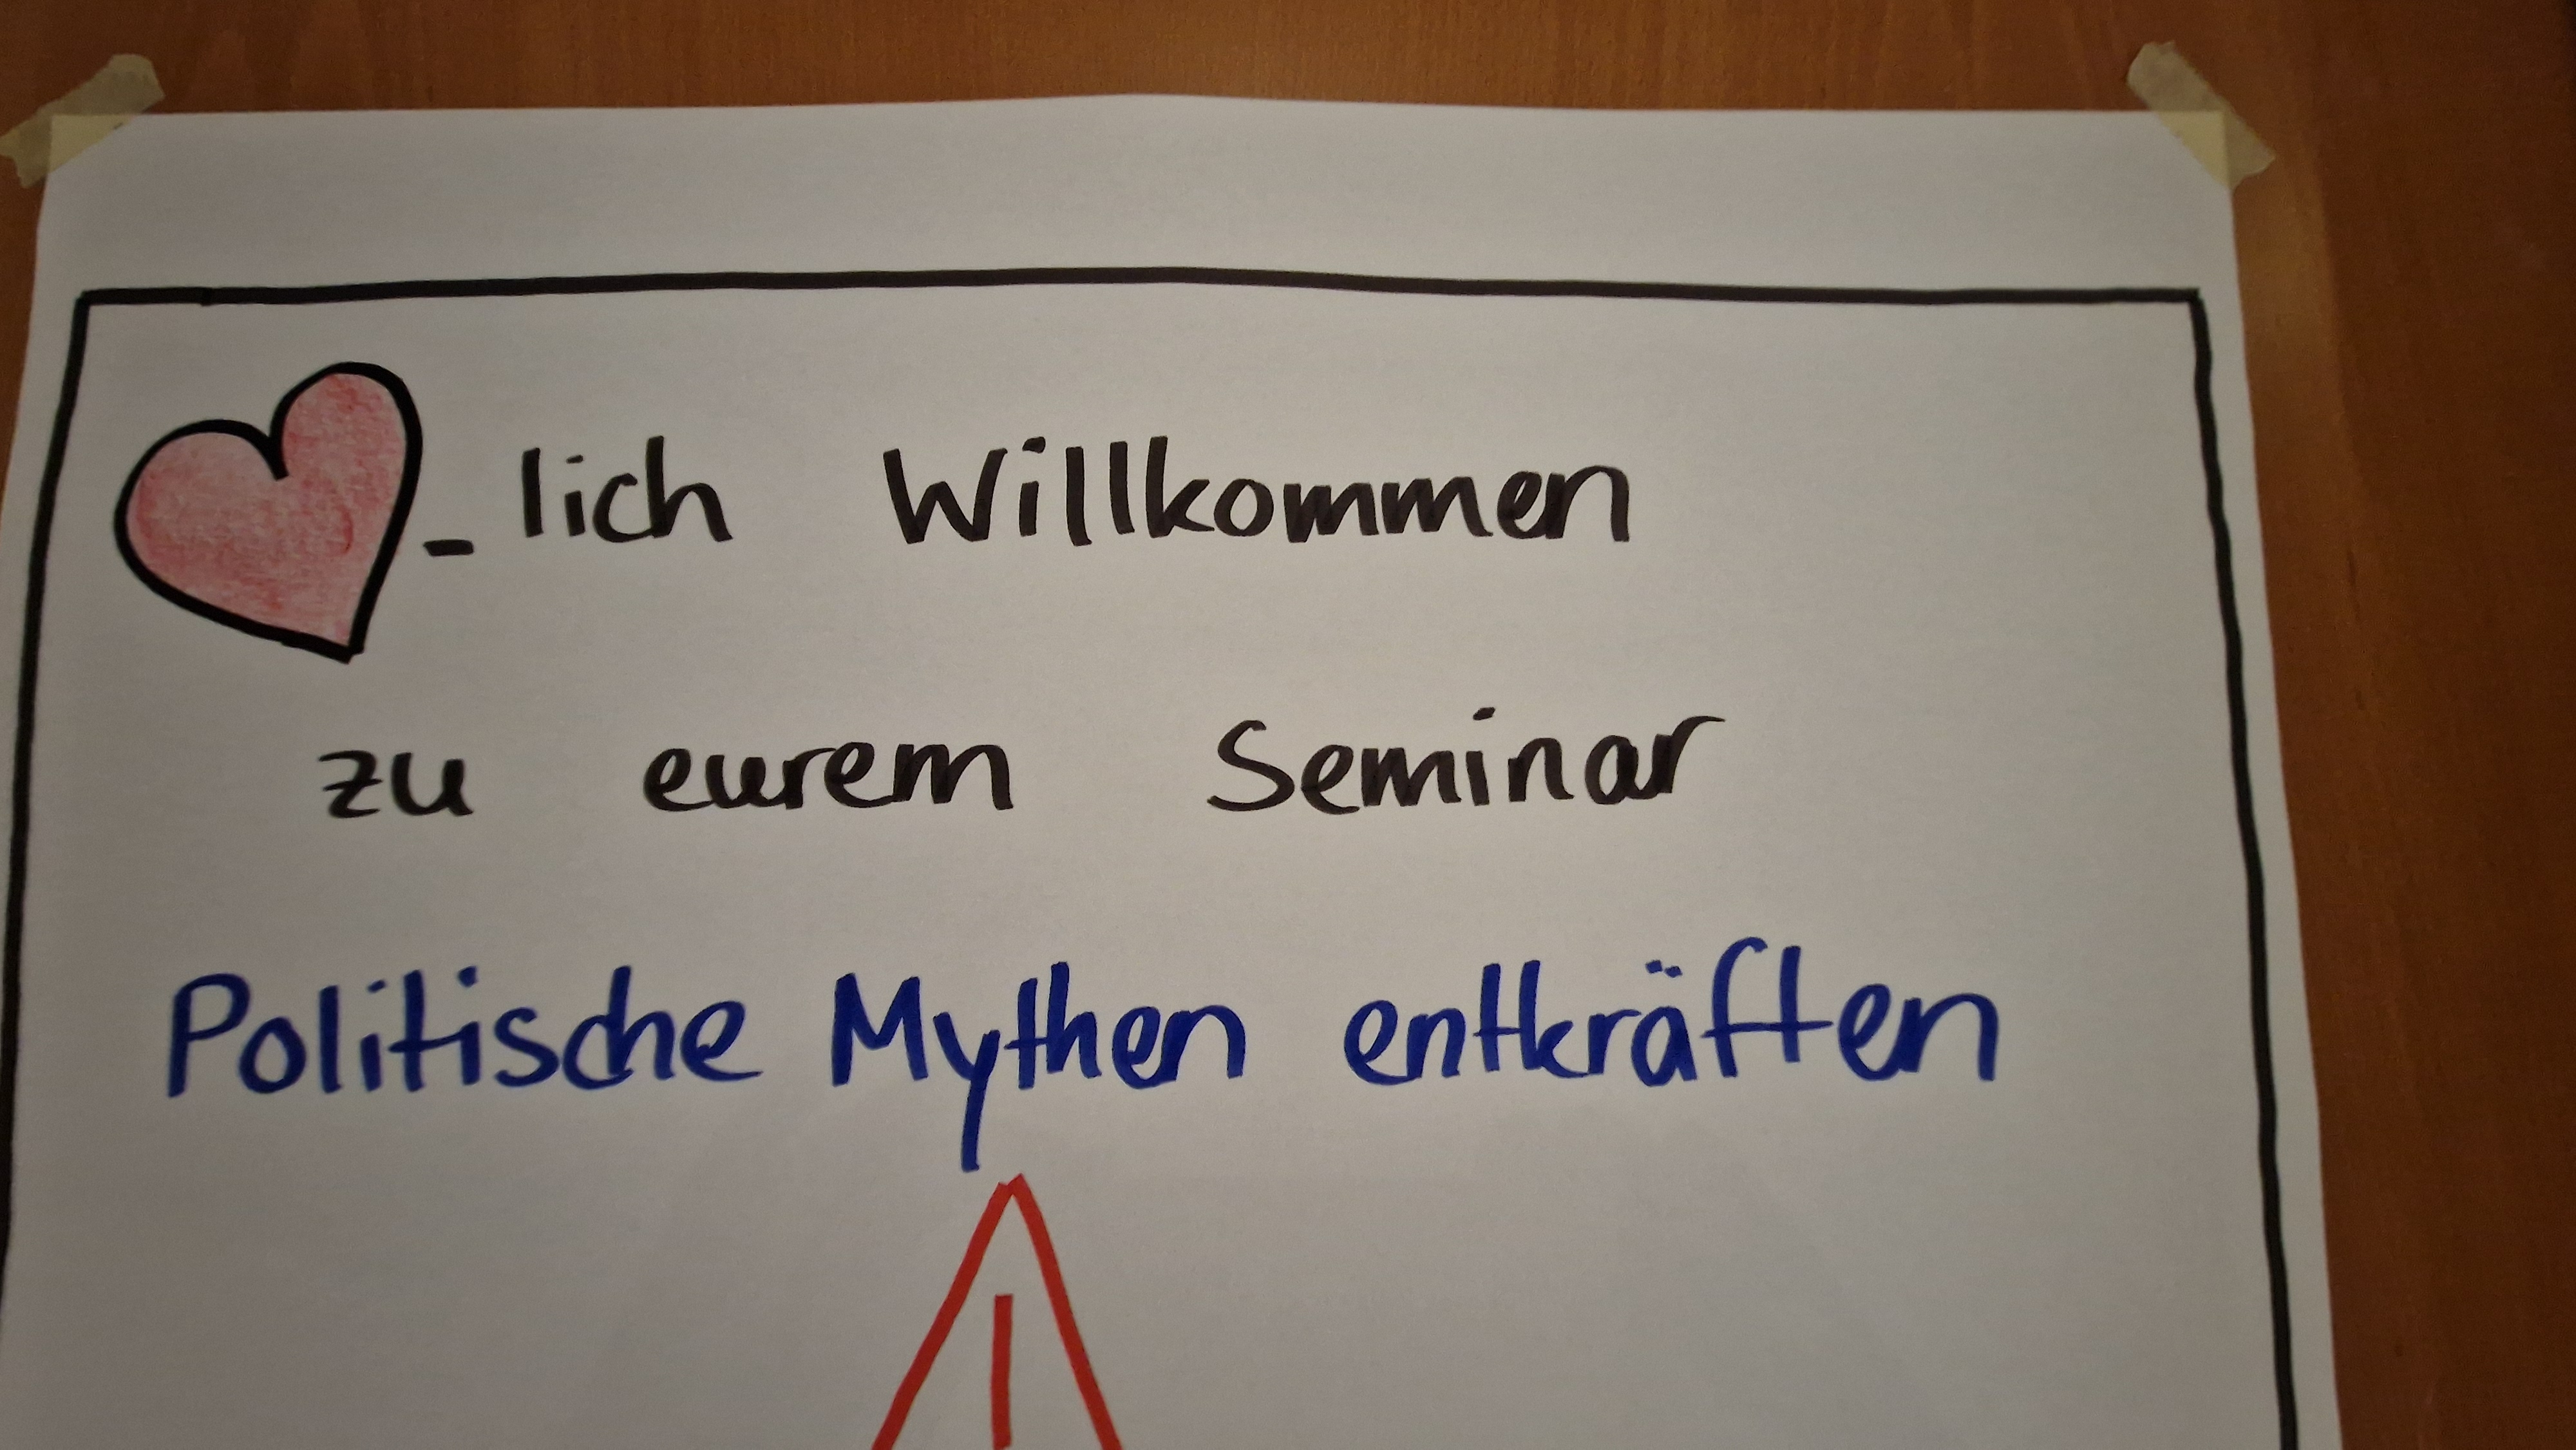 -lich Willkommen
zu eurem Seminar
Politische Mythen entkräften